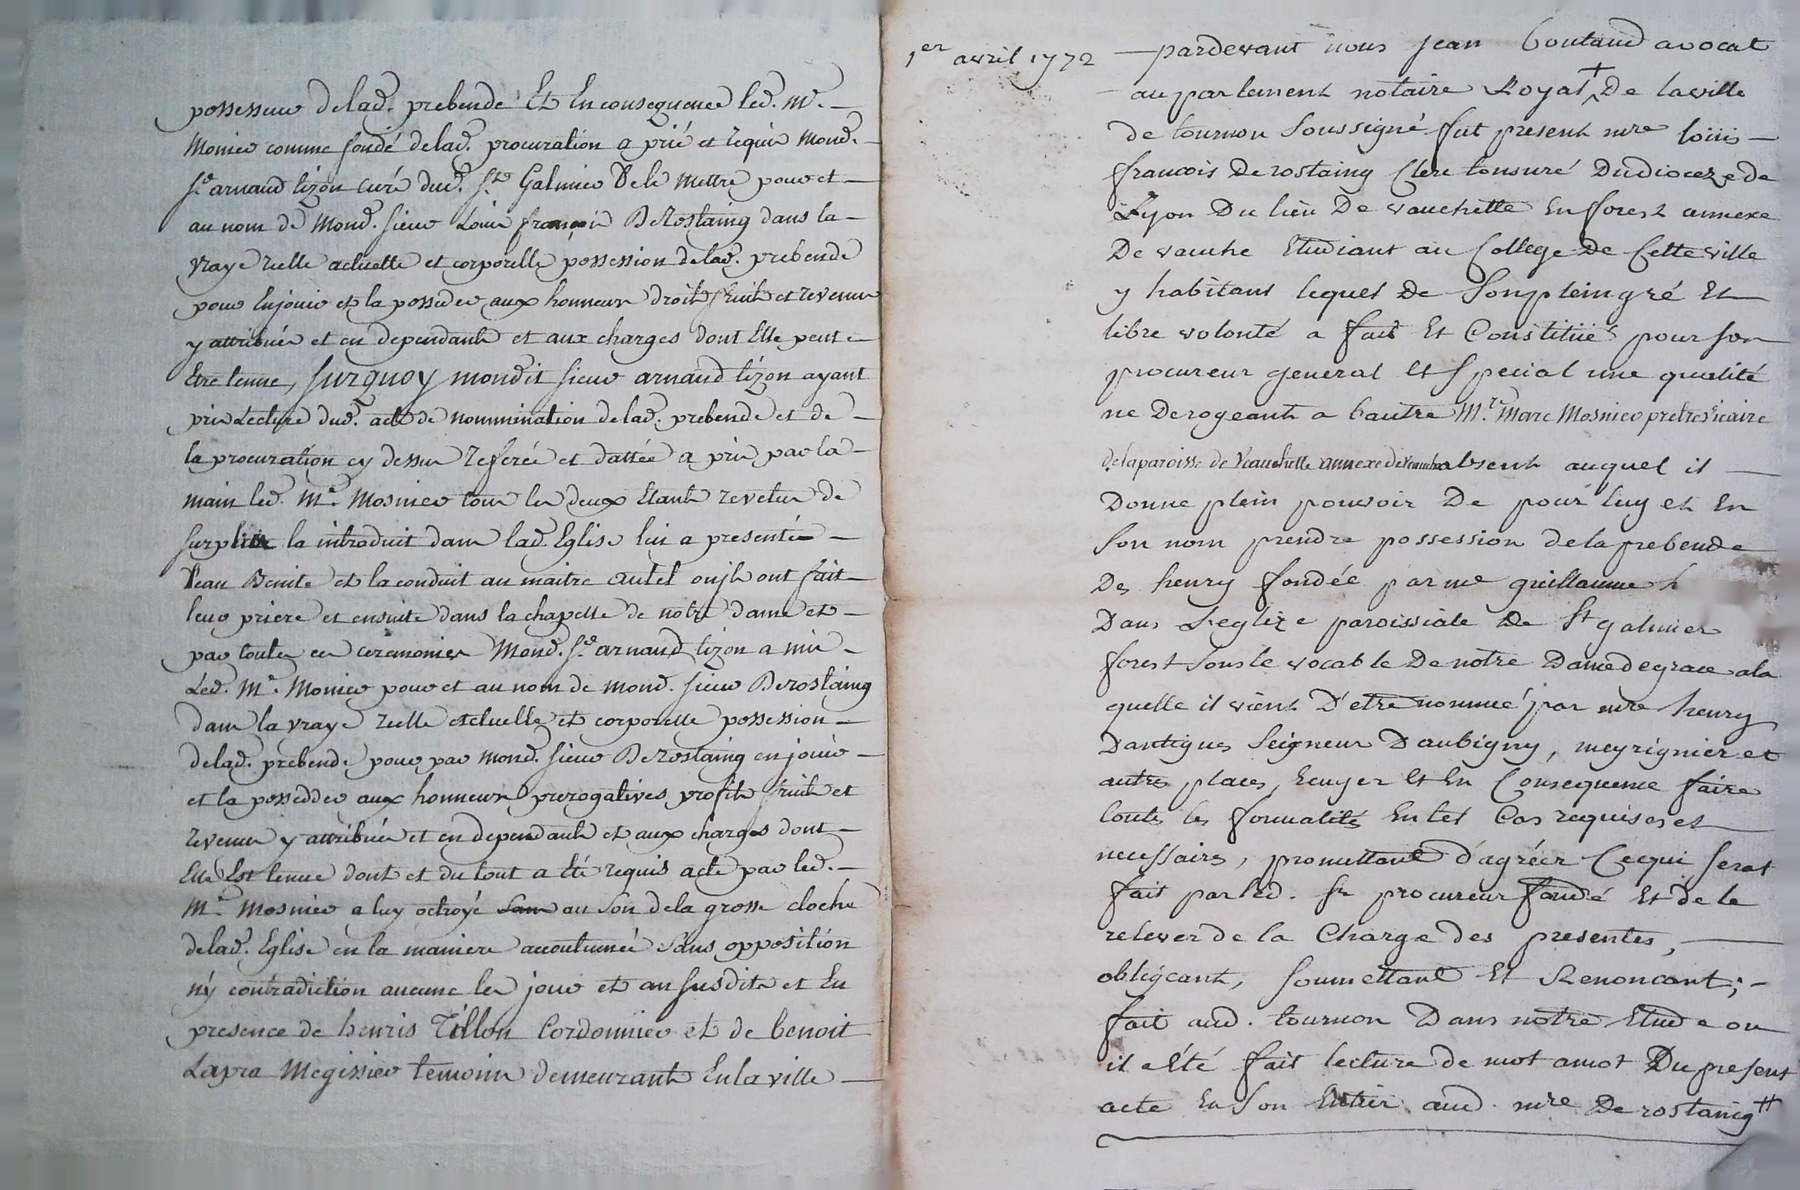 possesseur delad. prebende Et En consequence led. Mr. —
Monier comme fondé delad. procuration a prié et requis Mond. —
Sr. arnaud tizon curé dud. St. Galmier De le Mettre pour et —
au nom de Mond. sieur Louis françois De Rostaing dans la —
vraye reelle actuelle et corporelle possession delad. prebende
pour En jouir et la posseder aux honneurs droits fruits et revenus
y attribués et en dependants et aux charges dont Elle peut —
Etre tenue, surquoy mondit sieur arnaud tizon ayant
pris Lecture dud. acte de nommination delad. prebende et de —
la procuration cy dessus referée et dattée a pris par la —
main led. Mr. Mosnier tous les deux Etants revetus de
surplis la introduit dans lad. Eglise lui a presenté —
l'eau Benite et la conduit au maitre autel ou ils ont fait —
leur priere et ensuite dans la chapelle de notre dame et —
par toutes ces ceremonies Mond. Sr. arnaud tizon a mis —
Led. Mr. Monier pour et au nom de mond. sieur De rostaing
dans la vraye reelle actuelle et corporelle possession —
delad. prebende pour par mond. sieur De Rostaing en jouir —
et la posseder aux honneurs prerogatives profits fruits et
revenus y attribués et en dependants et aux charges dont —
Elle Est tenue dont et du tout a été requis acte par led. —
Mr. Mosnier a luy octroyé au son dela grosse cloche
delad. Eglise en la maniere accoutumée sans opposition
n'y contradiction aucune les jour et an susdits et En
presence de henris Tillon Cordonnier et de benoit
Lapra Megissier temoins demeurants En la ville —
1er avril 1772 — pardevant nous jean boutaud avocat
au parlement notaire Royal + De la ville
de tournon soussigné fut present mre loüis —
francois De rostaing Clerc tonsuré Du dioceze de
Lyon Du lieu De vauchette En forest annexe
De vauche Etudiant au College De Cette ville
y habitant lequel De son plein gré Et
libre volonté a fait Et Constitüé pour son
procureur general Et special une qualité
ne Derogeant a l'autre Mre. Marc Mosnier pretre vicaire
de la paroisse de Veauchette annexe de Veauche absent auquel il —
Donne plein pouvoir De pour luy et En
son nom prendre possession de la prebende
De henry fondée par me guillaume h
Dans L'eglize paroissiale De St galmier
forest sous le vocable De notre Dame de grace a la
quelle il vient D'etre nommé par mre henry
Dantignes Seigneur D'aubigny, meyrignier et
autres places, Ecuyer Et En Consequence faire
toutes les formalités En tel Cas requises et
necessaires, promettant d'agréer Ce qui serat
fait par led. Sr procureur fondé Et de le
relever de la Charge des presentes, —
obligeant, soumettant Et Renoncant; —
fait aud. tournon Dans notre Etude ou
il a été fait lecture de mot amot Du present
acte En son Entier aud. mre De rostaing ++